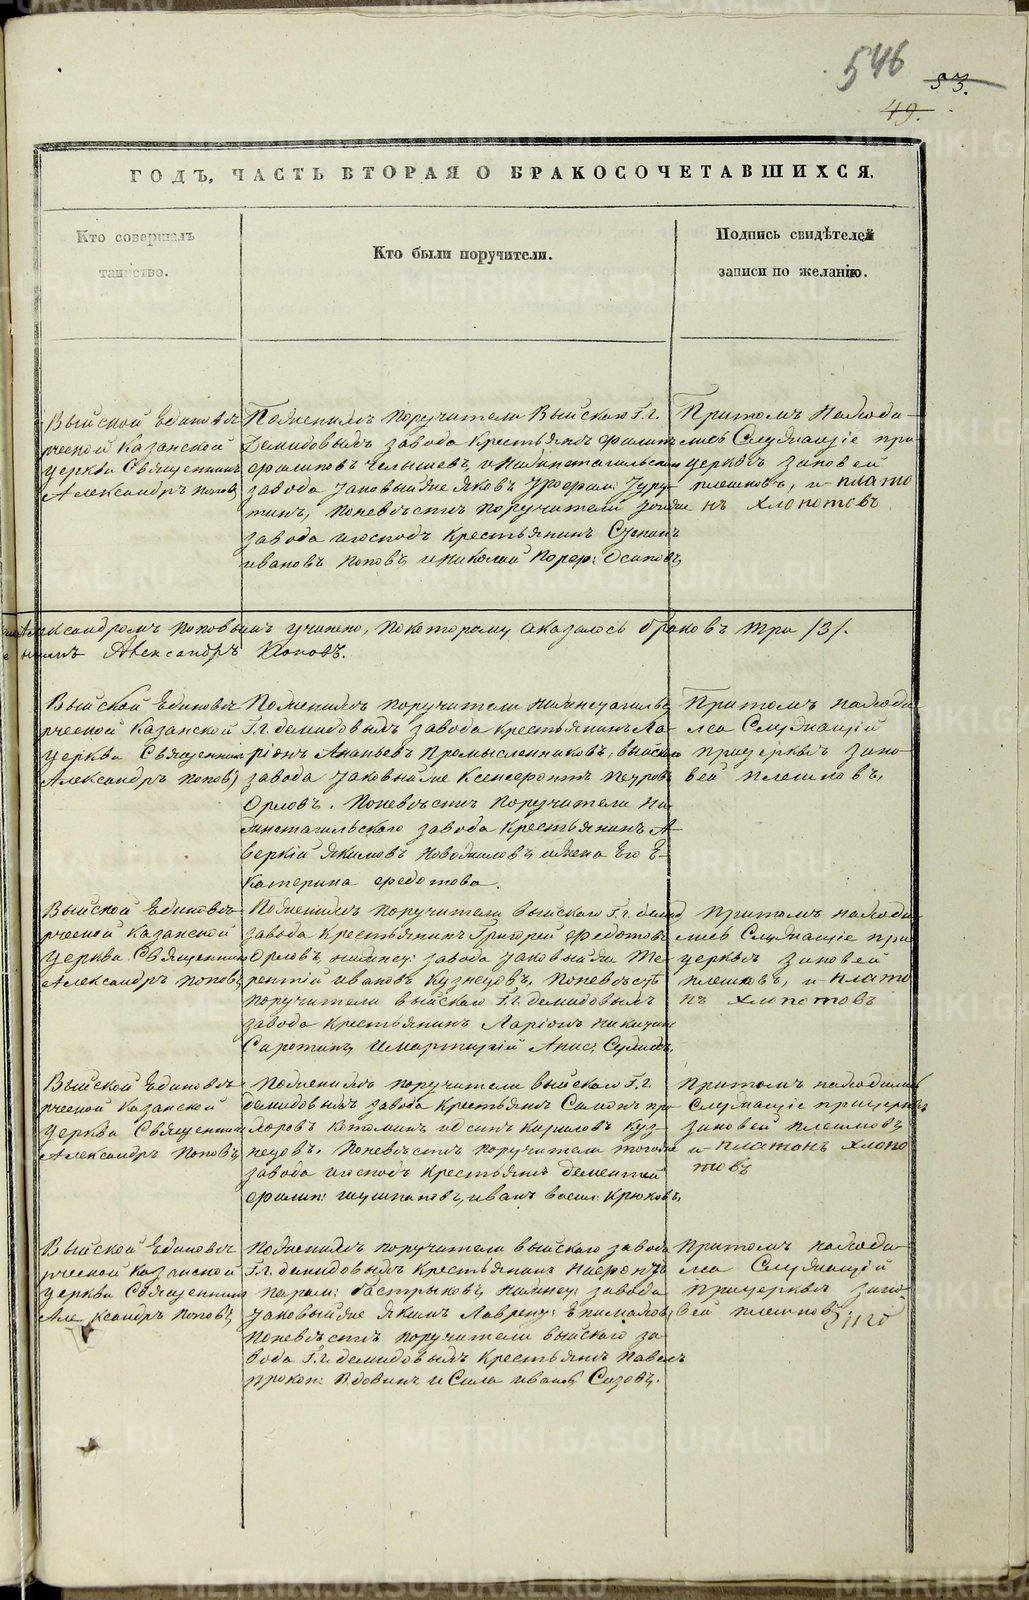 546
53.
49.
ГОДЪ, ЧАСТЬ ВТОРАЯ О БРАКОСОЧЕТАВШИХСЯ.
Кто совершалъ
таинство.
Кто были поручители.
Подпись свидѣтелей
записи по желанію.
Выйской Единовѣ-
рческой Казанской
церкви Священникъ
Александръ Поповъ
Поженихѣ поручители Выйскаго Г.г.
Демидовыхъ завода крестьянъ Филипъ
Филиповъ Челышевъ, и Нижнетагильскаго
завода Яковъ
Поневѣстѣ поручители
завода и господъ крестьянинъ Степанъ
Ивановъ Поповъ, и Николай Осиповъ
Притомъ находи-
лись Служащіе при
церквѣ Зиновей
Плешковъ, и Плато
нъ Хлопотовъ
Александромъ Поповымъ учинено, покоторому оказалось браковъ три /3/.
Александръ Поповъ.
Выйской Единовѣ
рческой Казанской
церкви Священникъ
Александръ Поповъ
Поженихѣ поручители Нижнетагильс
Г.г. Демидовыхъ завода крестьянинъ Ла-
ріонъ Ананьевъ Промысленниковъ, выйскаго
завода Ксенофонтъ Петровъ
Орловъ. Поневѣстѣ поручители Ни-
жнетагильскаго завода крестьянинъ А-
веркій Якимовъ и жена Его Е-
катерина Федотова.
Притомъ находи-
лся Служащій
прицерквѣ Зино-
вей Плешковъ,
Выйской Единовѣ-
рческой Казанской
церкви Священникъ
Александръ Поповъ
Поженихѣ поручители выйскаго Г.г. демид
завода крестьянинъ Григорей Федотовъ
Орловъ, завода Те-
рентій Ивановъ Кузнецовъ, Поневѣстѣ
поручители выйскаго Г.г. демидовыхъ
завода крестьянинъ Ларіонъ Никитин
Сиротинъ
Притомъ находи-
лись Служащіе при
церквѣ Зиновей
Плешковъ, и Плато
нъ Хлопотовъ
Выйской Единовѣ-
рческой Казанской
церкви Священникъ
Александръ Поповъ
Поженихѣ поручители выйскаго Г.г.
демидовыхъ завода крестьянъ
Кириловъ Куз-
нецовъ. Поневѣстѣ поручители тогоже
завода и господъ крестьянъ Дементей
Филип: Иванъ Васил: Крюковъ,
Притомъ находились
Служащіе прицерквѣ
Зиновей Плешковъ
и Платонъ Хлопо
товъ
Выйской Единовѣ
рческой Казанской
церкви Священникъ
Александръ Поповъ
Поженихѣ поручители выйскаго завода
Г.г. демидовыхъ крестьянинъ
завода
Якимъ
Поневѣстѣ поручители выйскаго за-
вода Г.г. демидовыхъ крестьянъ Павелъ
Прокоп: Вдовинъ и Сила Иванов: Сизовъ.
Притомъ находи-
лся Служащій
Прицерквѣ Зино-
вей Плешковъ